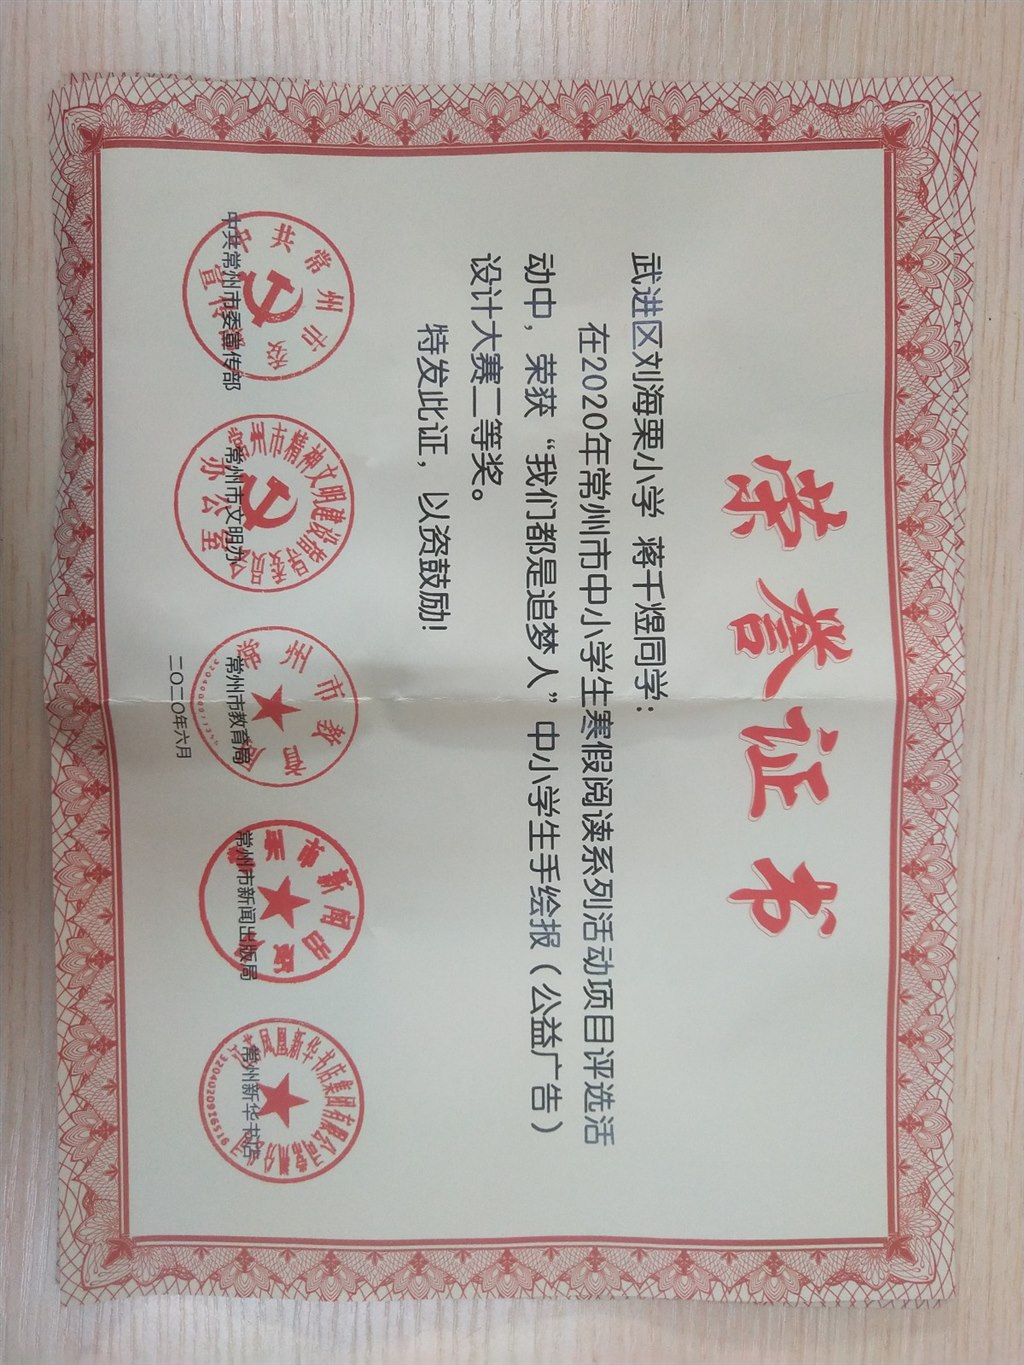 荣誉证书
武进区刘海粟小学 蒋千煜同学：
在2020年常州市中小学生寒假阅读系列活动项目评选活
动中，荣获“我们都是追梦人”中小学生手绘报（公益广告）
设计大赛二等奖。
特发此证，以资鼓励！
中共常州市委宣传部 常州市文明办 常州市教育局 常州市新闻出版局 常州新华书店
二〇二〇年六月